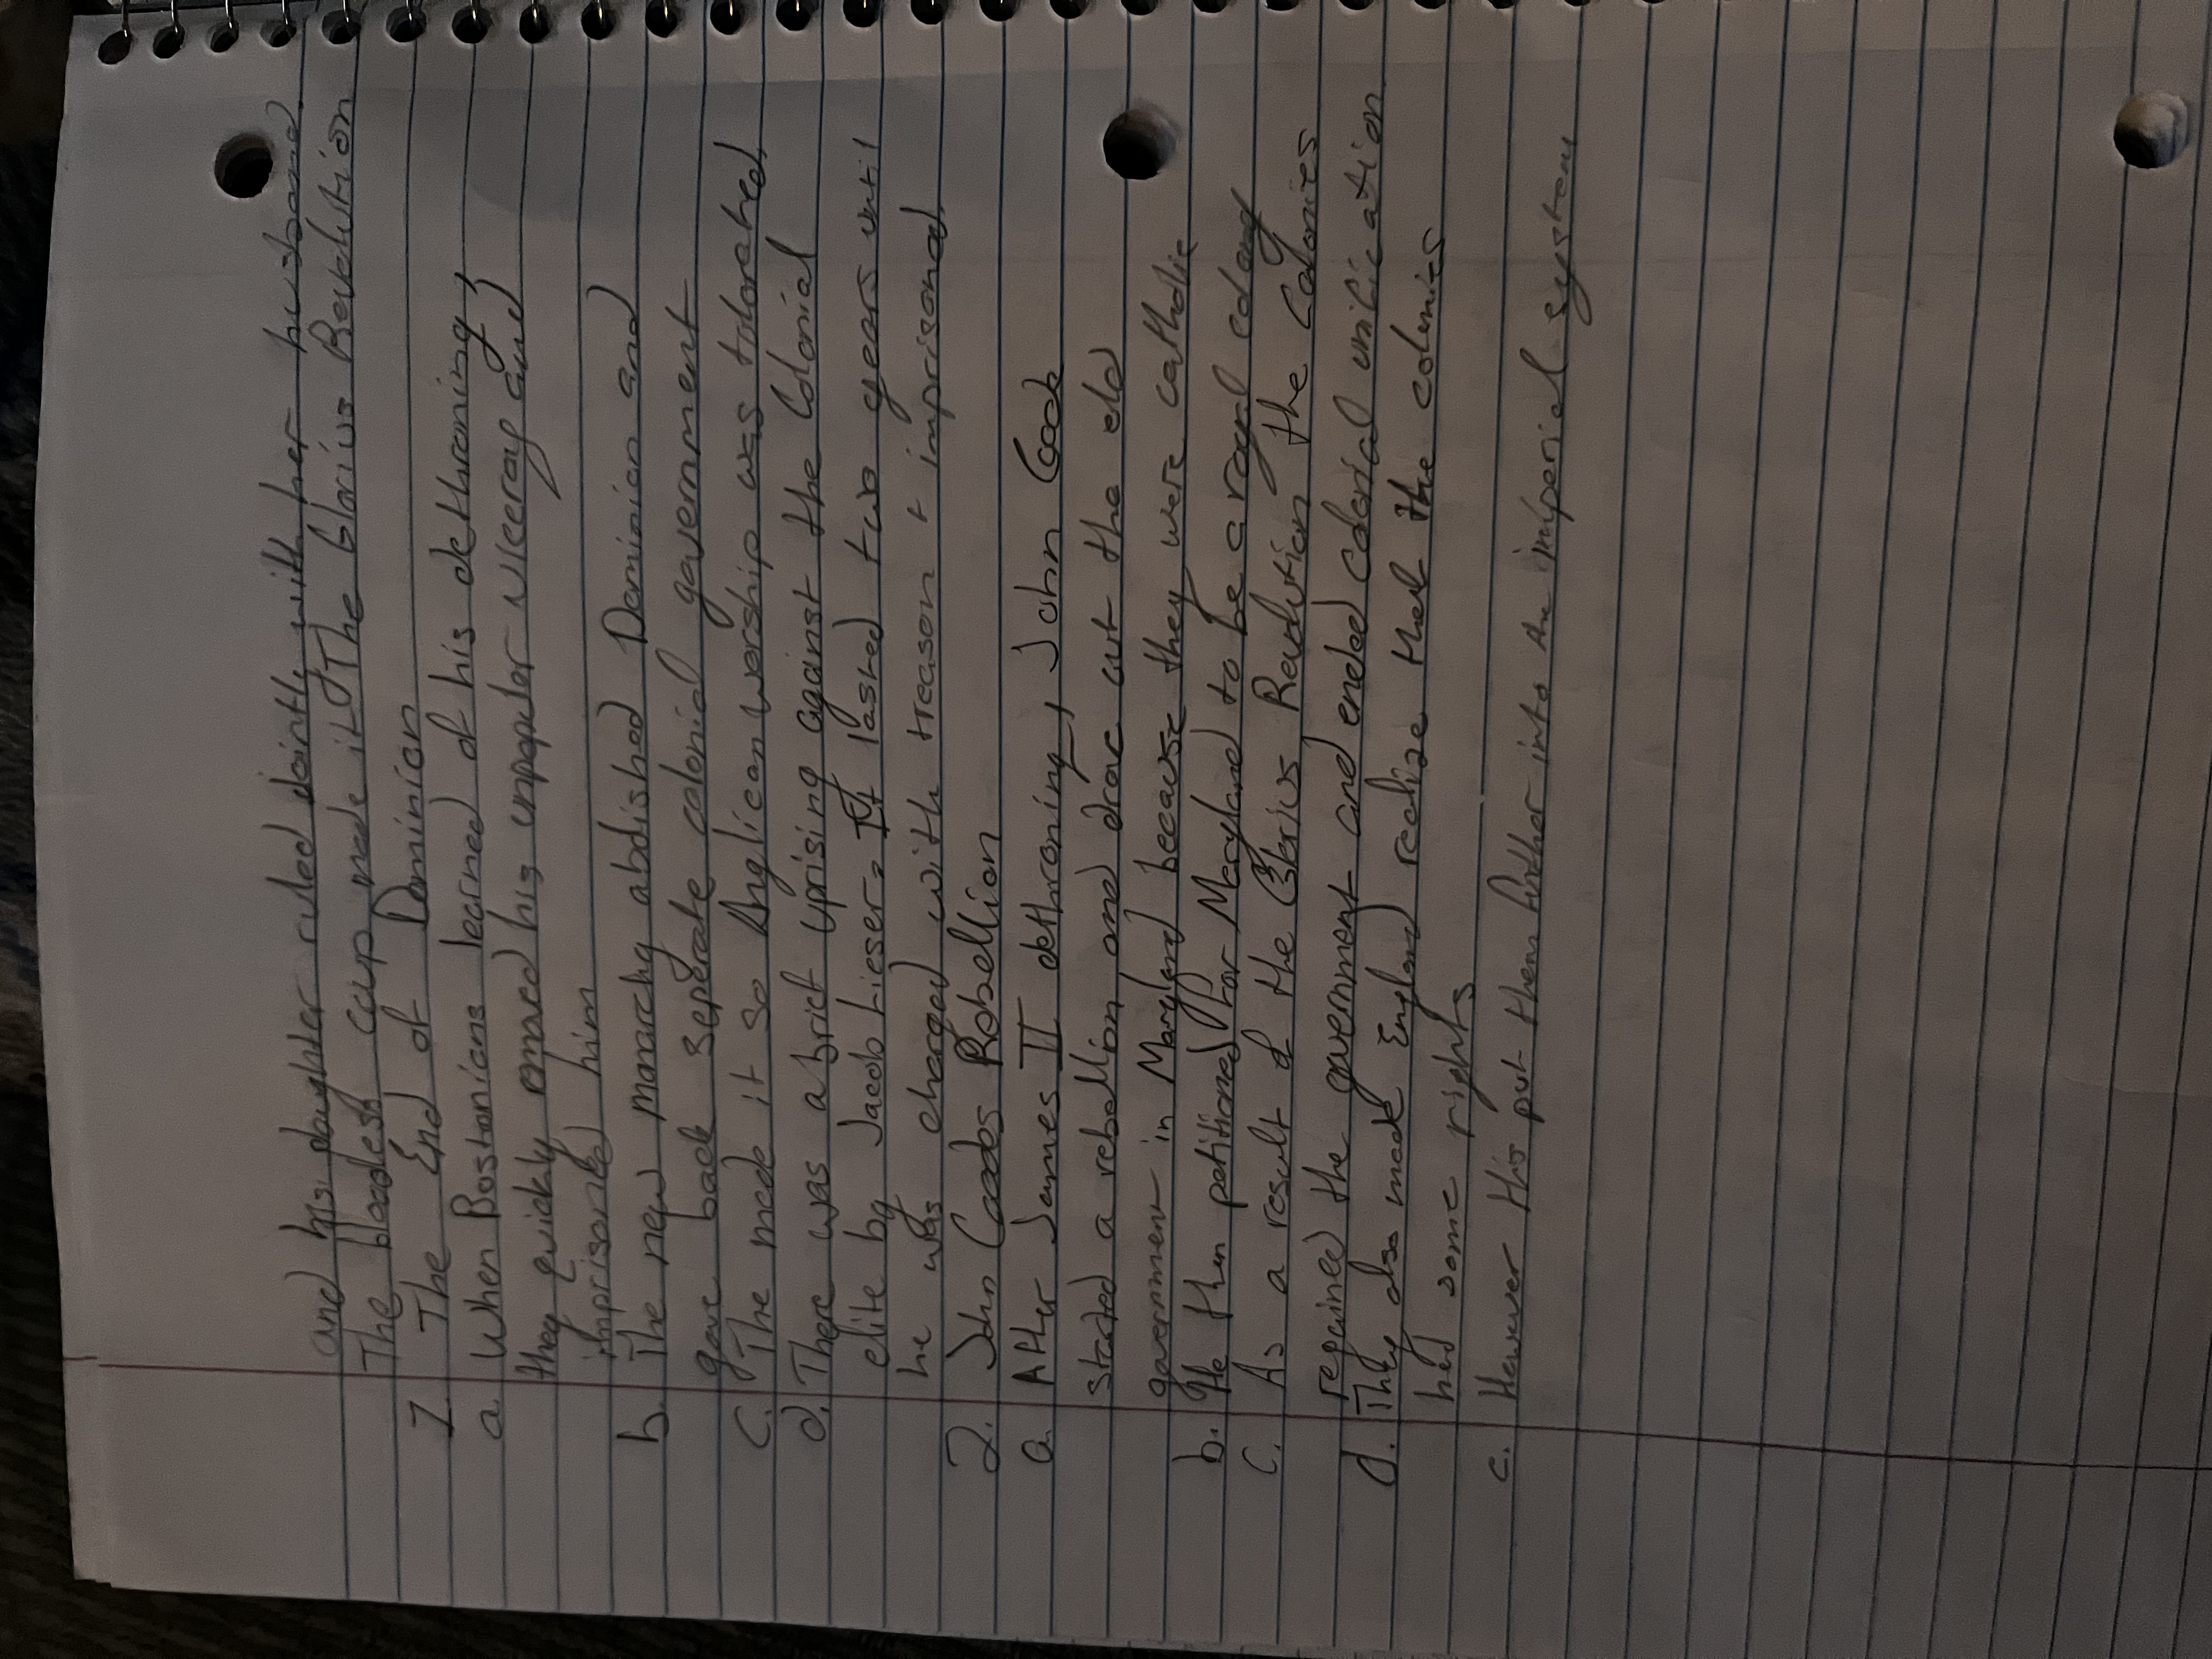 and his daughter ruled jointly with her husband
The bloodless coup made it The Glorius Revolution
1. The End of Dominion
a. When Bostonians learned of his dethroning,
they quickly emaced his unpopuler viceroy and
imprisoned him
b. The new monarchy abolished Dominion and
gave back seperate colonial government
c. The made it so Anglican worship was tolorated
d. There was a brief uprising against the Colonial
elite by Jacob Lieser. It lasted two years until
he was charged with treason + imprisoned
2. John Coodes Rebellion
a. After James II dethroning, John Coode
started a rebellion and drove out the old
government in Maryland because they were catholic
b. He then petitioned for Maryland to be a royal colony
C. As a result of the Glorius Revolution the Colonies
regained the government and ended colonial unification
d. They also made England realize that the colonies
had some rights
c. However this put them further into the imperial system